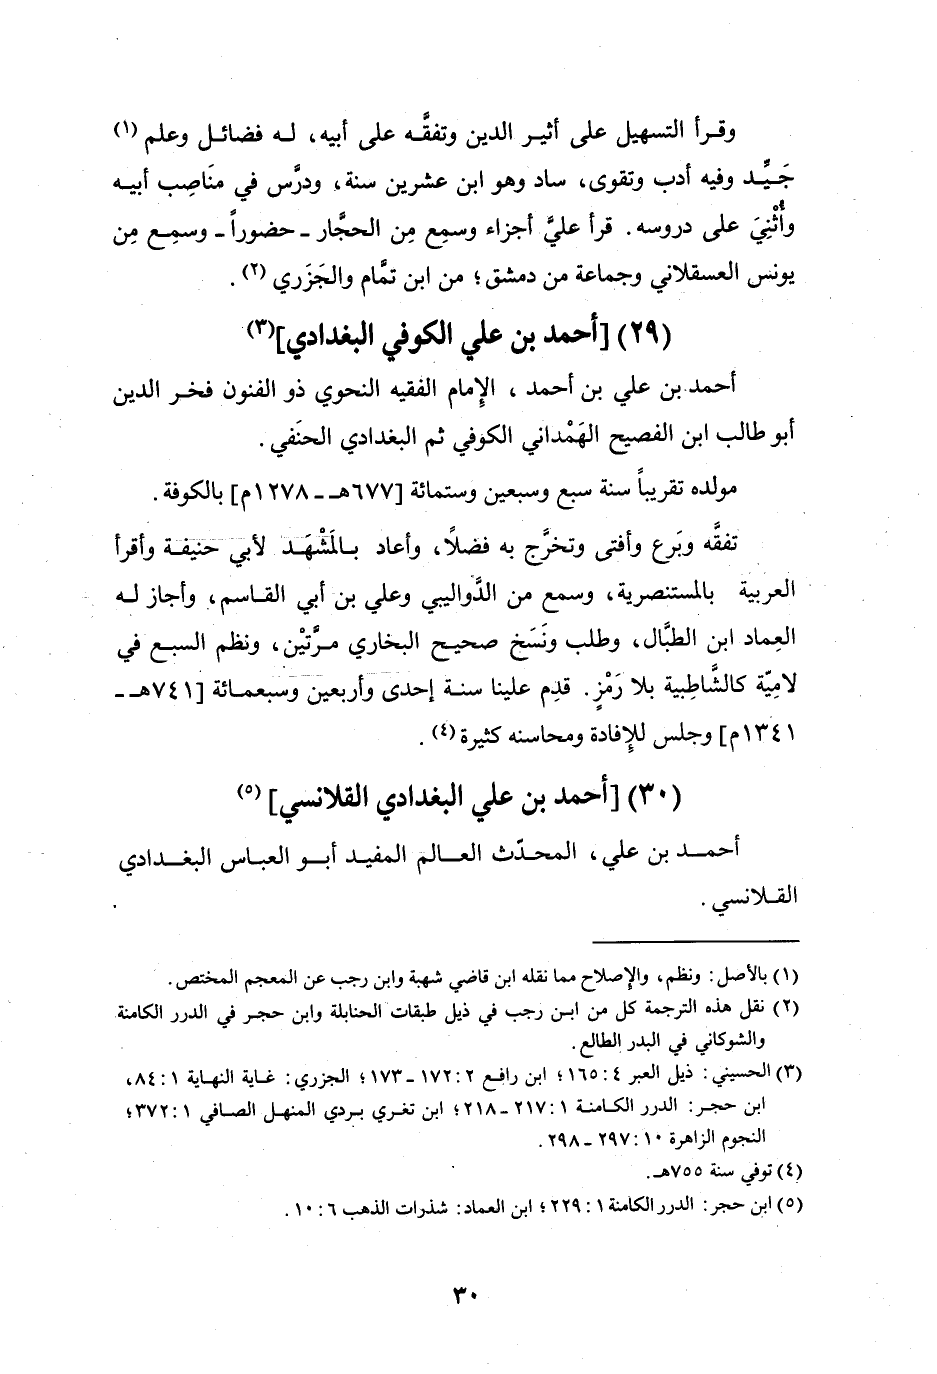 وقرأ التسهيل على أثير الدين وتفقَّه على أبيه، له فضائل وعلم (١)
جَيِّد وفيه أدب وتقوى، ساد وهو ابن عشرين سنة، ودرَّس في مناصِب أبيه
وأُثْنِيَ على دروسه. قرأ عليَّ أجزاء وسمِع مِن الحجَّار ـ حضوراً ـ وسمِع مِن
يونس العسقلاني وجماعة من دمشق؛ من ابن تمَّام والجَزَري (٢).
(٢٩) [أحمد بن علي الكوفي البغدادي](٣)
أحمد بن علي بن أحمد ، الإمام الفقيه النحوي ذو الفنون فخر الدين
أبو طالب ابن الفصيح الهَمْداني الكوفي ثم البغدادي الحنَفي .
مولده تقريباً سنة سبع وسبعين وستمائة [٦٧٧هـ ـ ١٢٧٨م] بالكوفة .
تفقَّه وبَرع وأفتى وتخرَّج به فضلًا، وأعاد بالمَشْهَد لأبي حنيفة وأقرأ
العربية بالمستنصرية، وسمع من الدَّواليبي وعلي بن أبي القاسم، وأجاز له
العِماد ابن الطبَّال، وطلب ونَسَخ صحيح البخاري مرَّتيْن، ونظم السبع في
لامِيّة كالشَّاطِبية بلا رَمْزٍ. قدِم علينا سنة إحدى وأربعين وسبعمائة [٧٤١هـ ـ
١٣٤١م] وجلس للإفادة ومحاسنه كثيرة (٤) .
(٣٠) [أحمد بن علي البغدادي القلانسي] (٥)
أحمد بن علي، المحدّث العالم المفيد أبو العباس البغدادي
القلانسي .
(١) بالأصل: ونظم، والإصلاح مما نقله ابن قاضي شهبة وابن رجب عن المعجم المختص.
(٢) نقل هذه الترجمة كل من ابن رجب في ذيل طبقات الحنابلة وابن حجر في الدرر الكامنة
والشوكاني في البدر الطالع.
(٣) الحسيني: ذيل العبر ٤: ١٦٥؛ ابن رافع ٢: ١٧٢ ـ ١٧٣؛ الجزري: غاية النهاية ١: ٨٤،
ابن حجر: الدرر الكامنة ١: ٢١٧ ـ ٢١٨؛ ابن تغري بردي المنهل الصافي ١: ٣٧٢؛
النجوم الزاهرة ١٠: ٢٩٧ ـ ٢٩٨.
(٤) توفي سنة ٧٥٥هـ.
(٥) ابن حجر: الدرر الكامنة ١: ٢٢٩؛ ابن العماد: شذرات الذهب ٦: ١٠.
٣٠